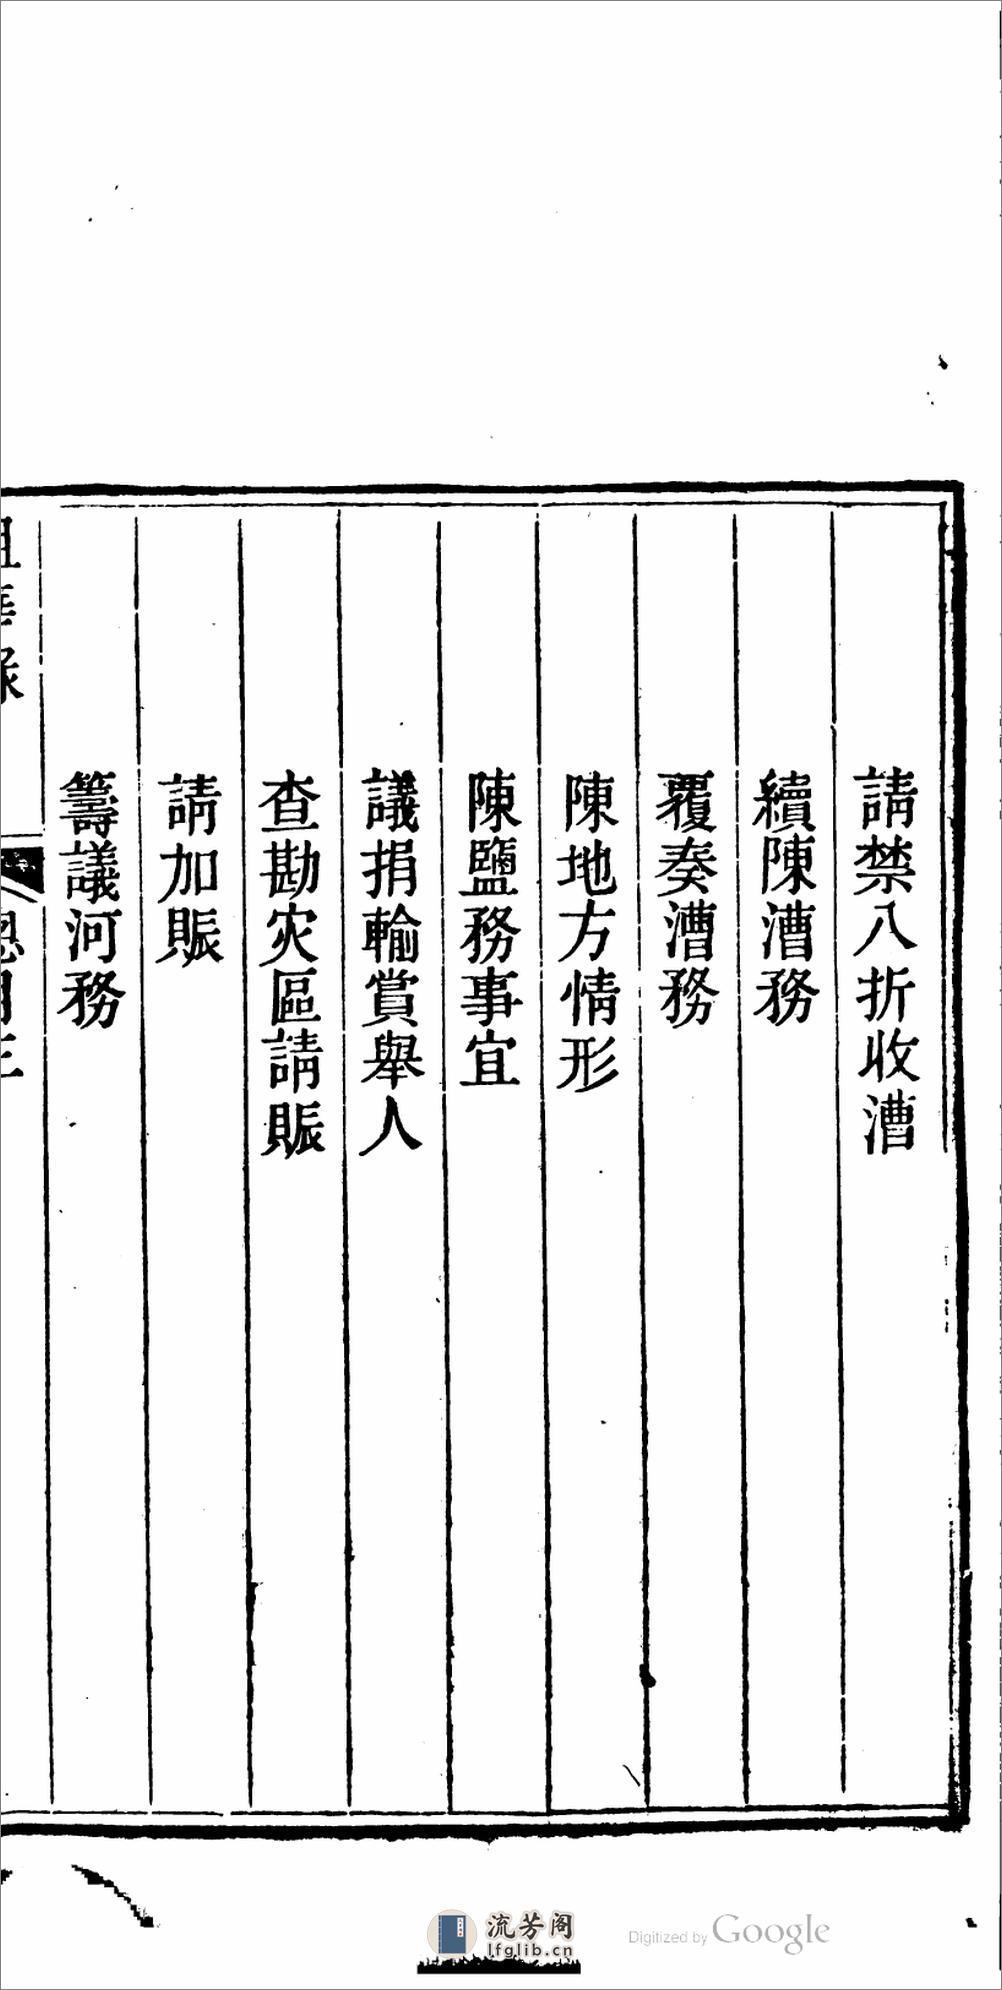 請禁八折收漕
續陳漕務
覆奏漕務
陳地方情形
陳鹽務事宜
議捐輸賞舉人
查勘灾區請賑
請加賑
籌議河務
總目三
流芳阁
lfglib.cn
Digitized by Google